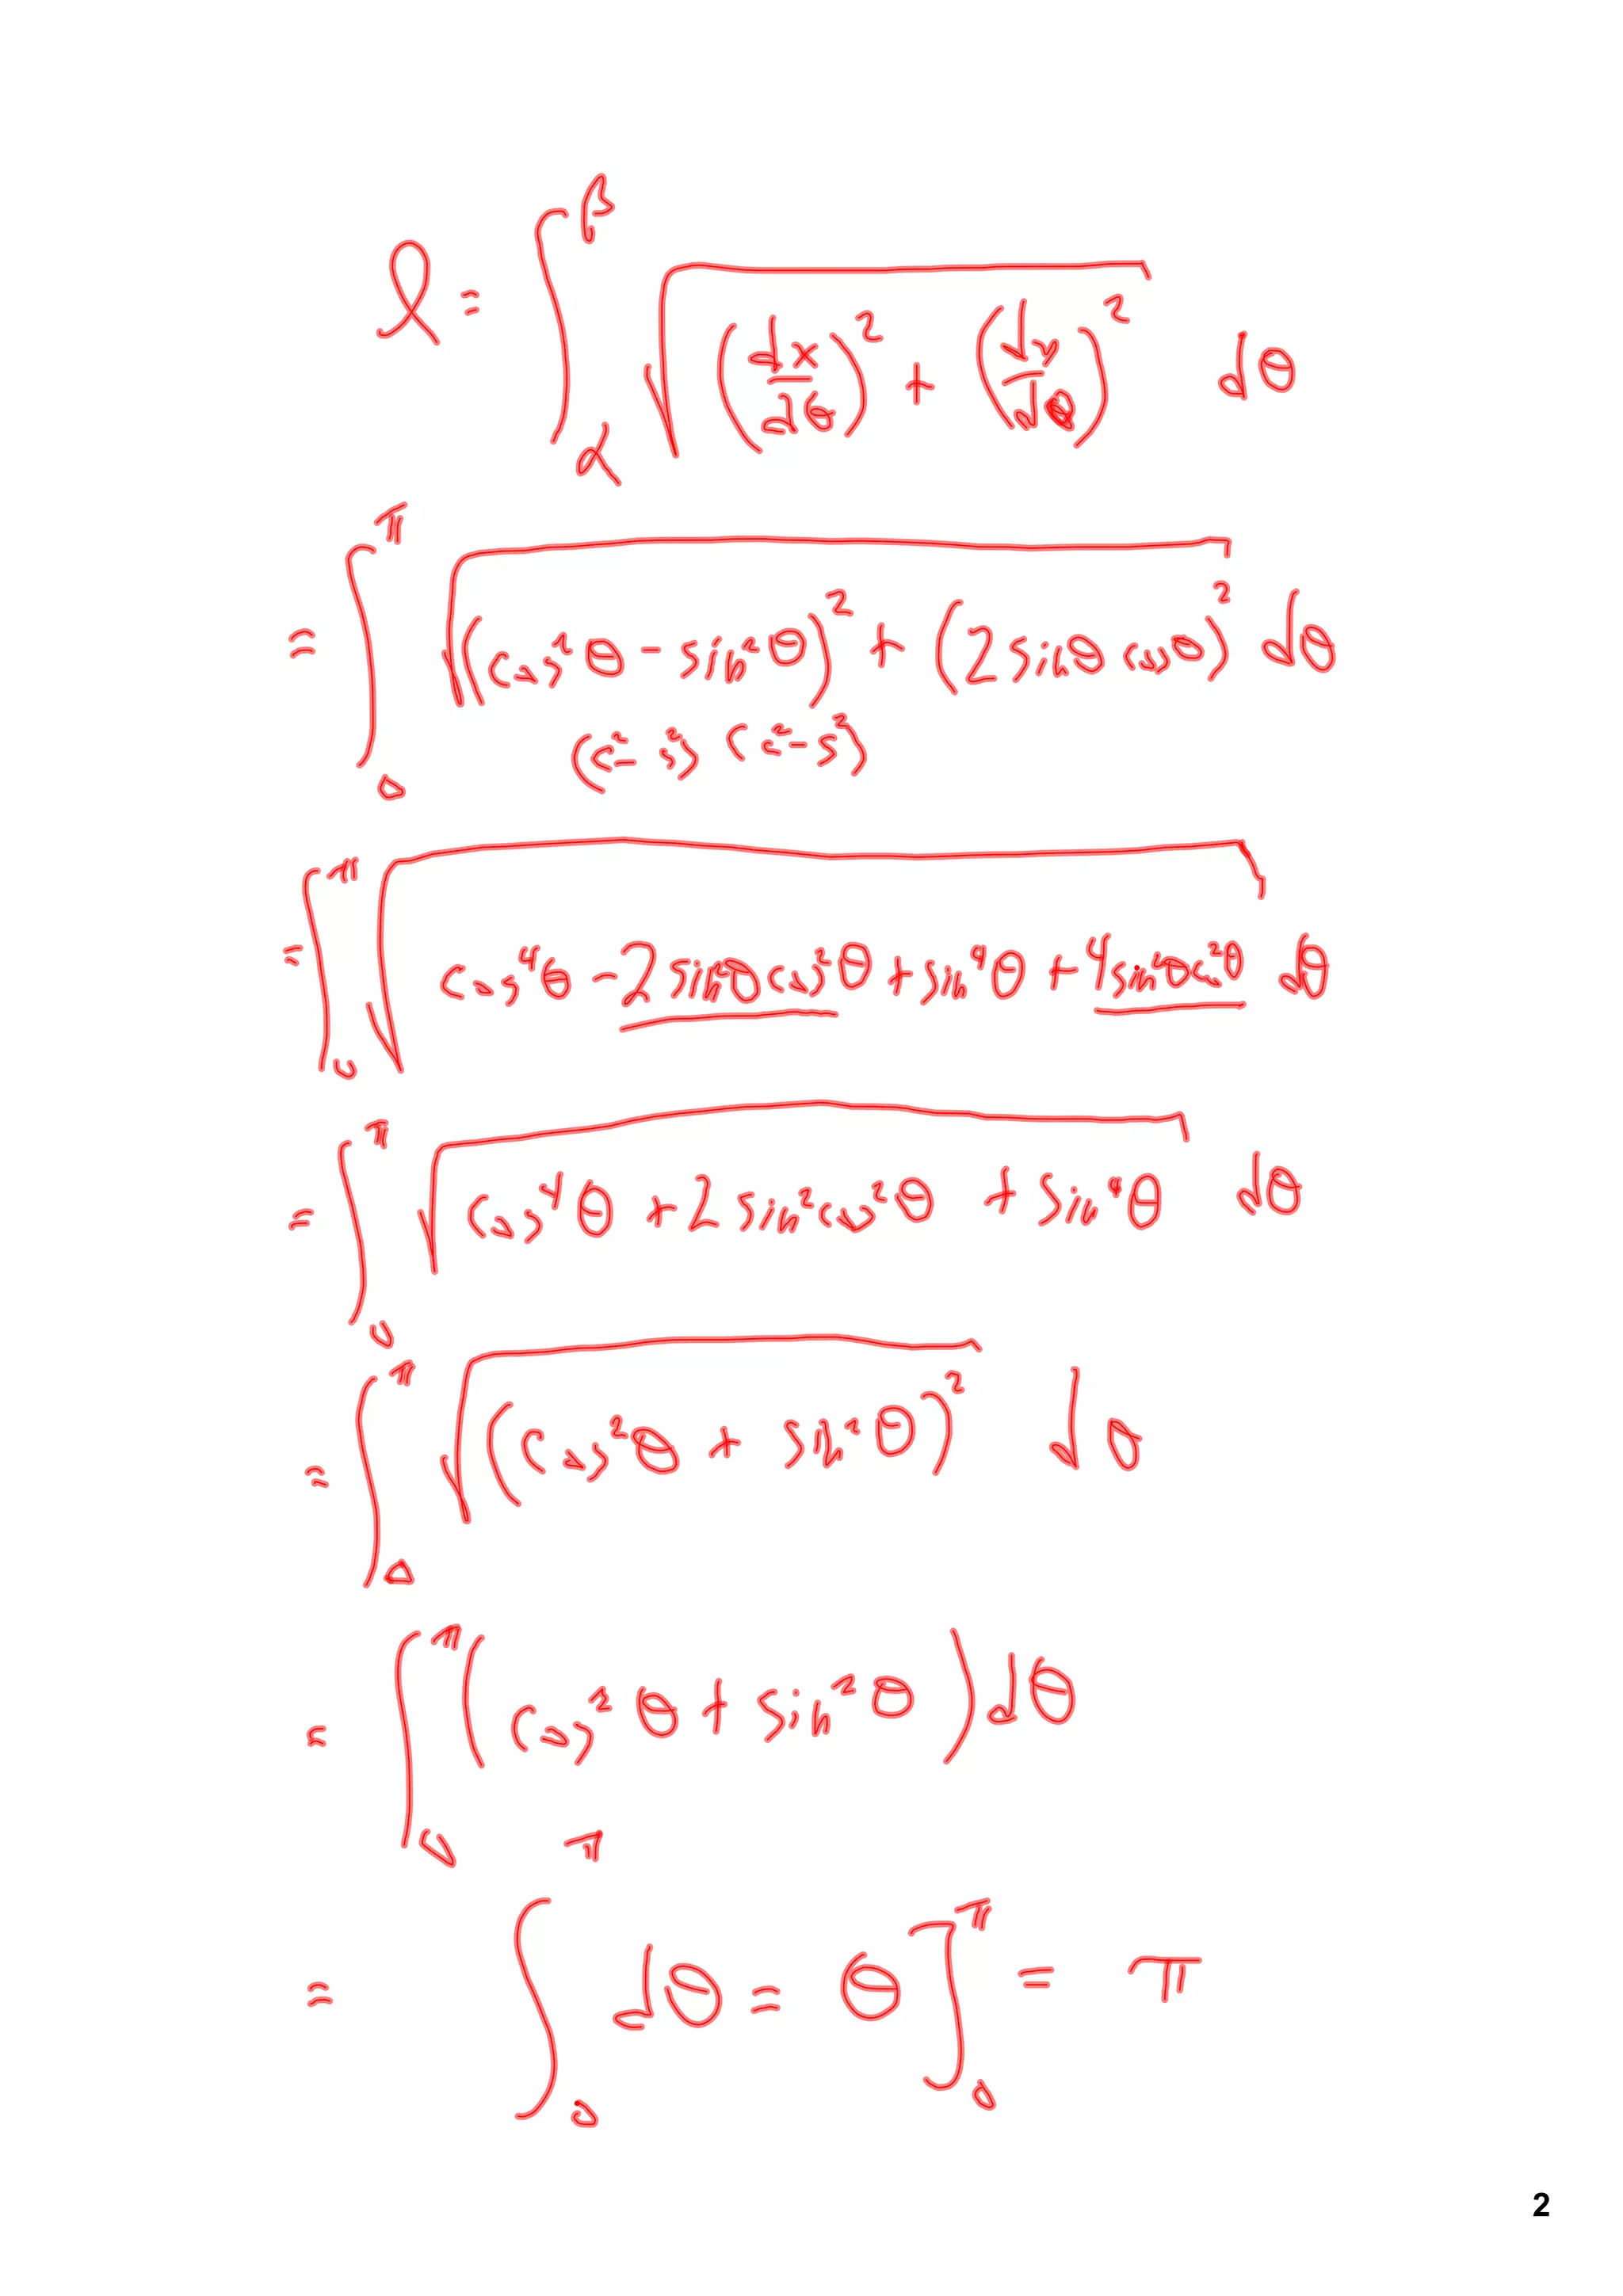 ℓ = ∫_α^β √((dx/dθ)² + (dy/dθ)²) dθ
= ∫_0^π √((cos²θ - sin²θ)² + (2sinθcosθ)²) dθ
(c² - s²)(c² - s²)
= ∫_0^π √(cos⁴θ - 2sin²θcos²θ + sin⁴θ + 4sin²θcos²θ) dθ
= ∫_0^π √(cos⁴θ + 2sin²cos²θ + sin⁴θ) dθ
= ∫_0^π √((cos²θ + sin²θ)²) dθ
= ∫_0^π (cos²θ + sin²θ) dθ
= ∫_0^π dθ = θ]_0^π = π
2